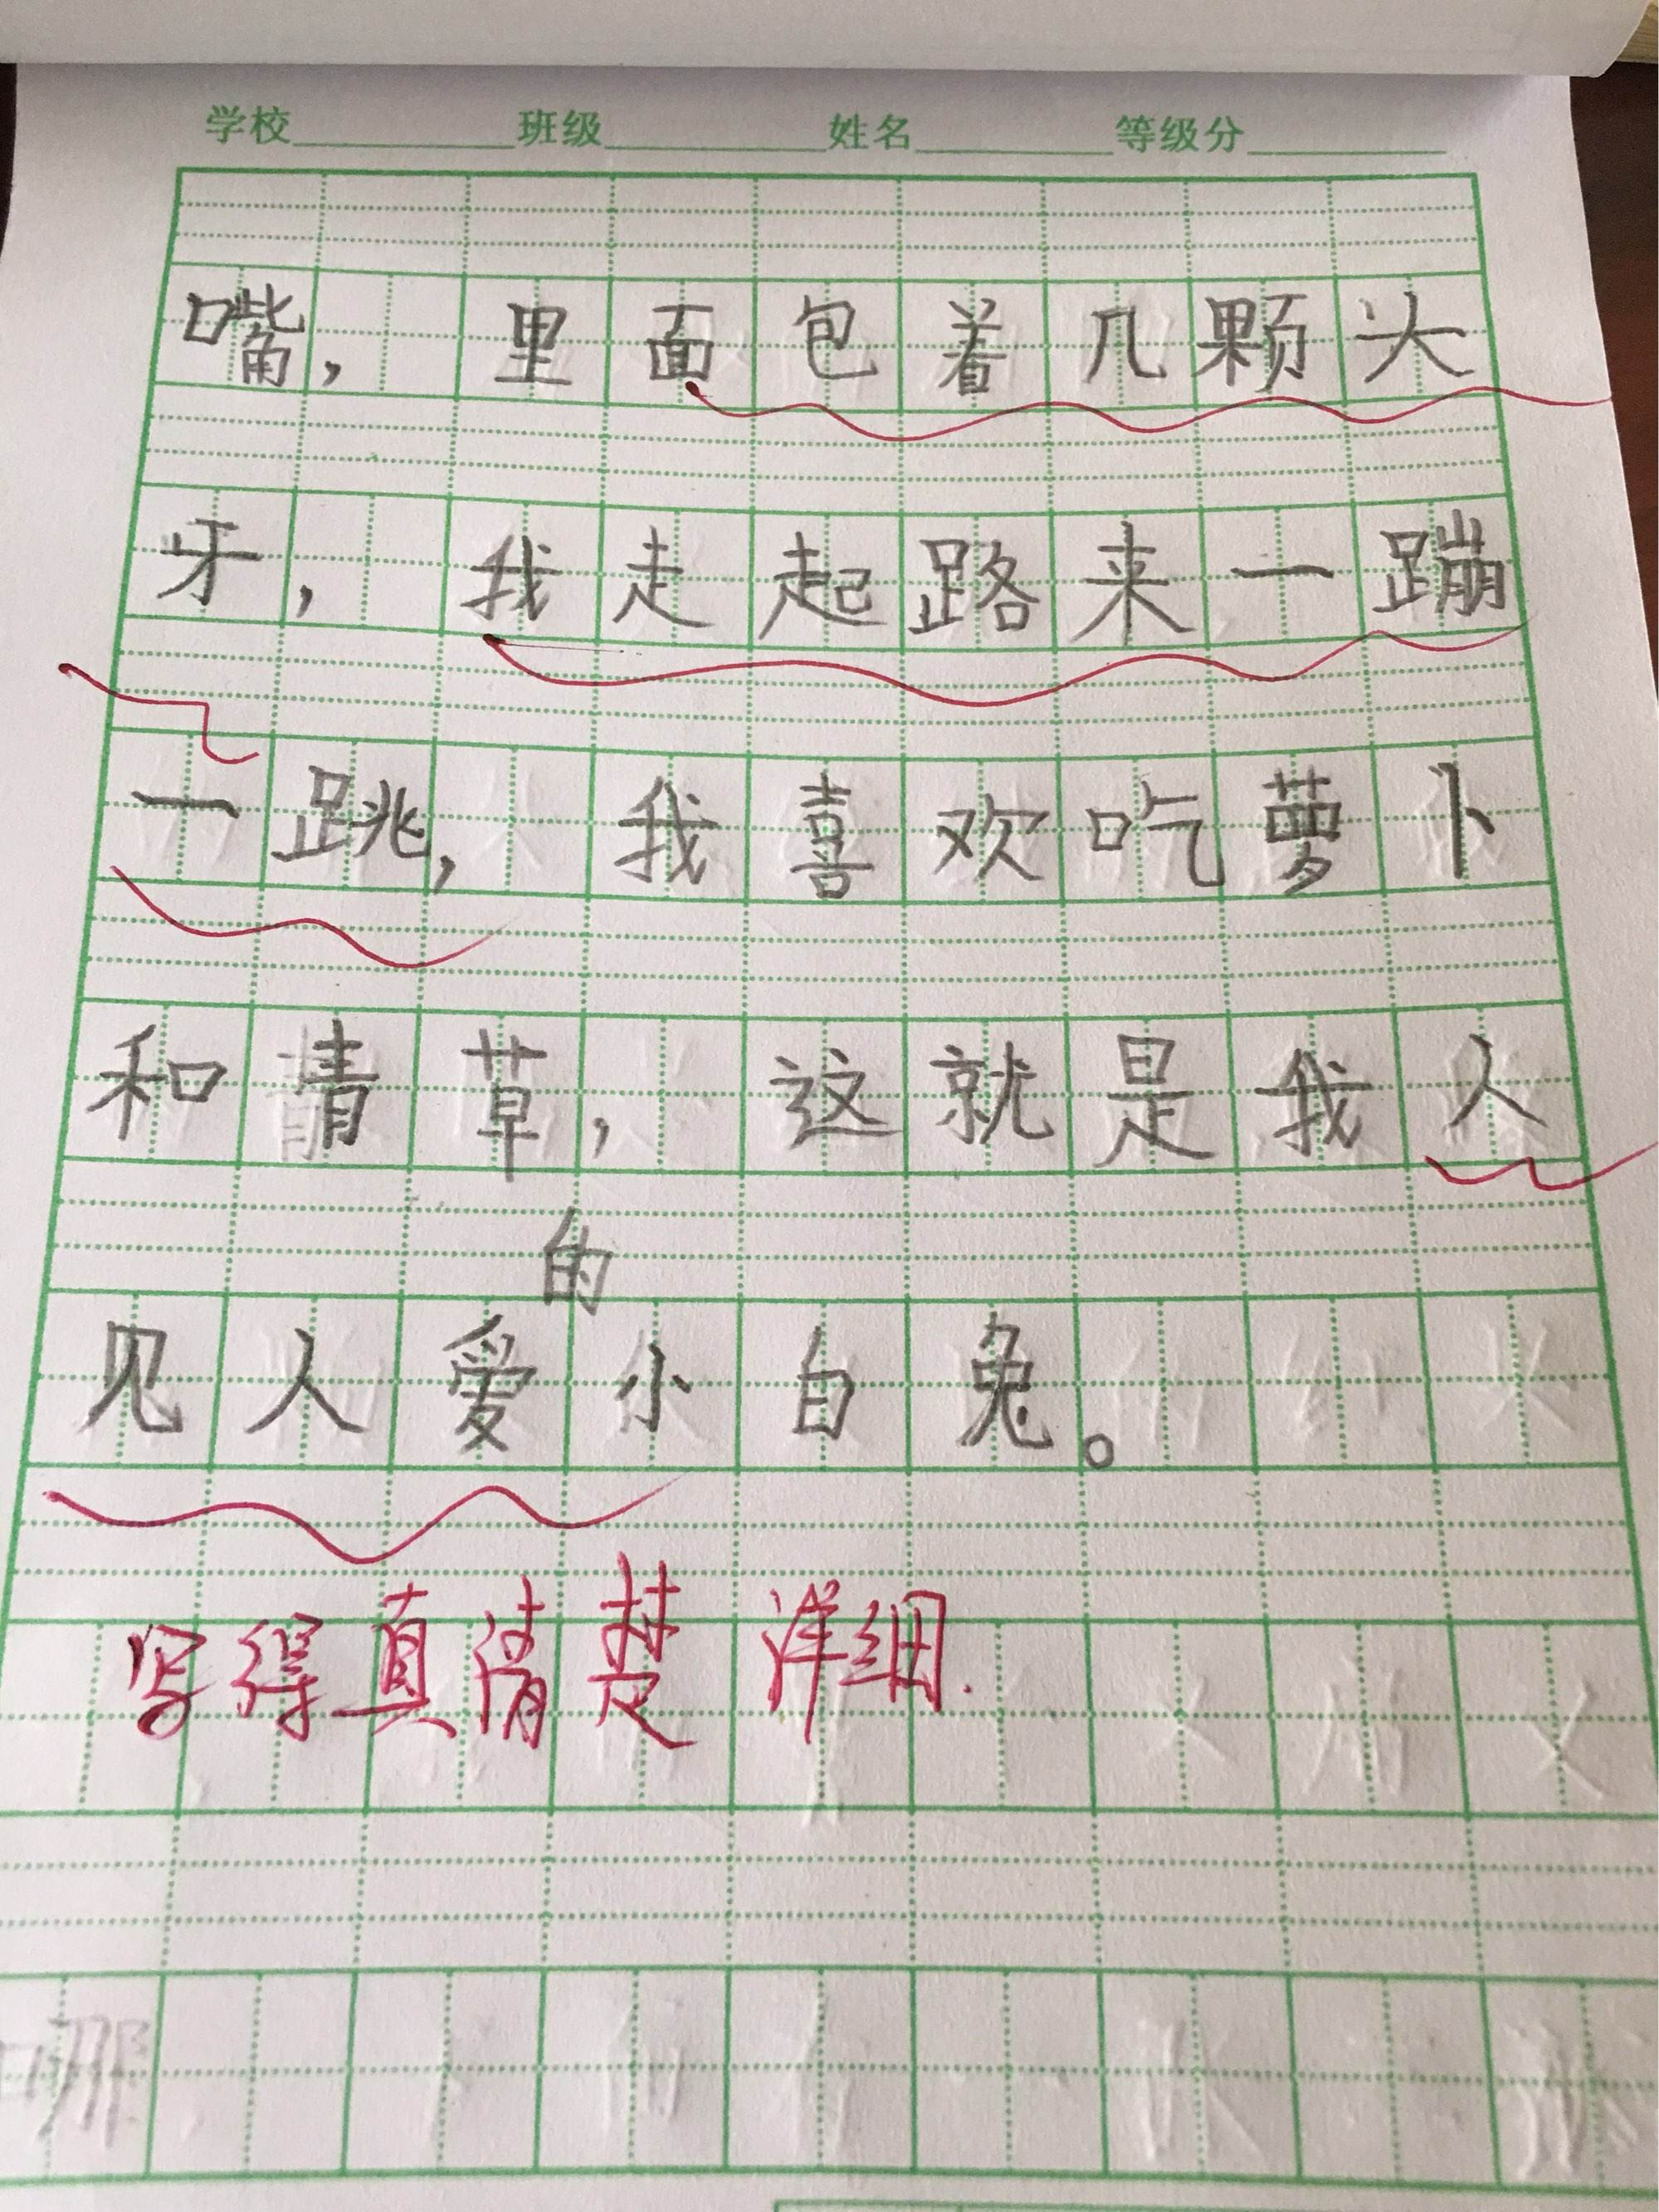 学校 班级 姓名 等级分
嘴，里面包着几颗大
牙，我走起路来一蹦
一跳，我喜欢吃萝卜
和青草，这就是我人
的
见人爱小白兔。
写得真清楚 详细.
哪